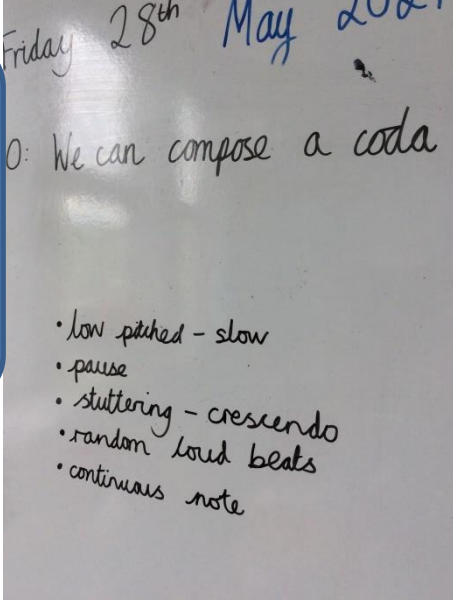 Friday 28th May 2021
O: We can compose a coda
• low pitched - slow
• pause
• stuttering - crescendo
• random loud beats
• continuous note